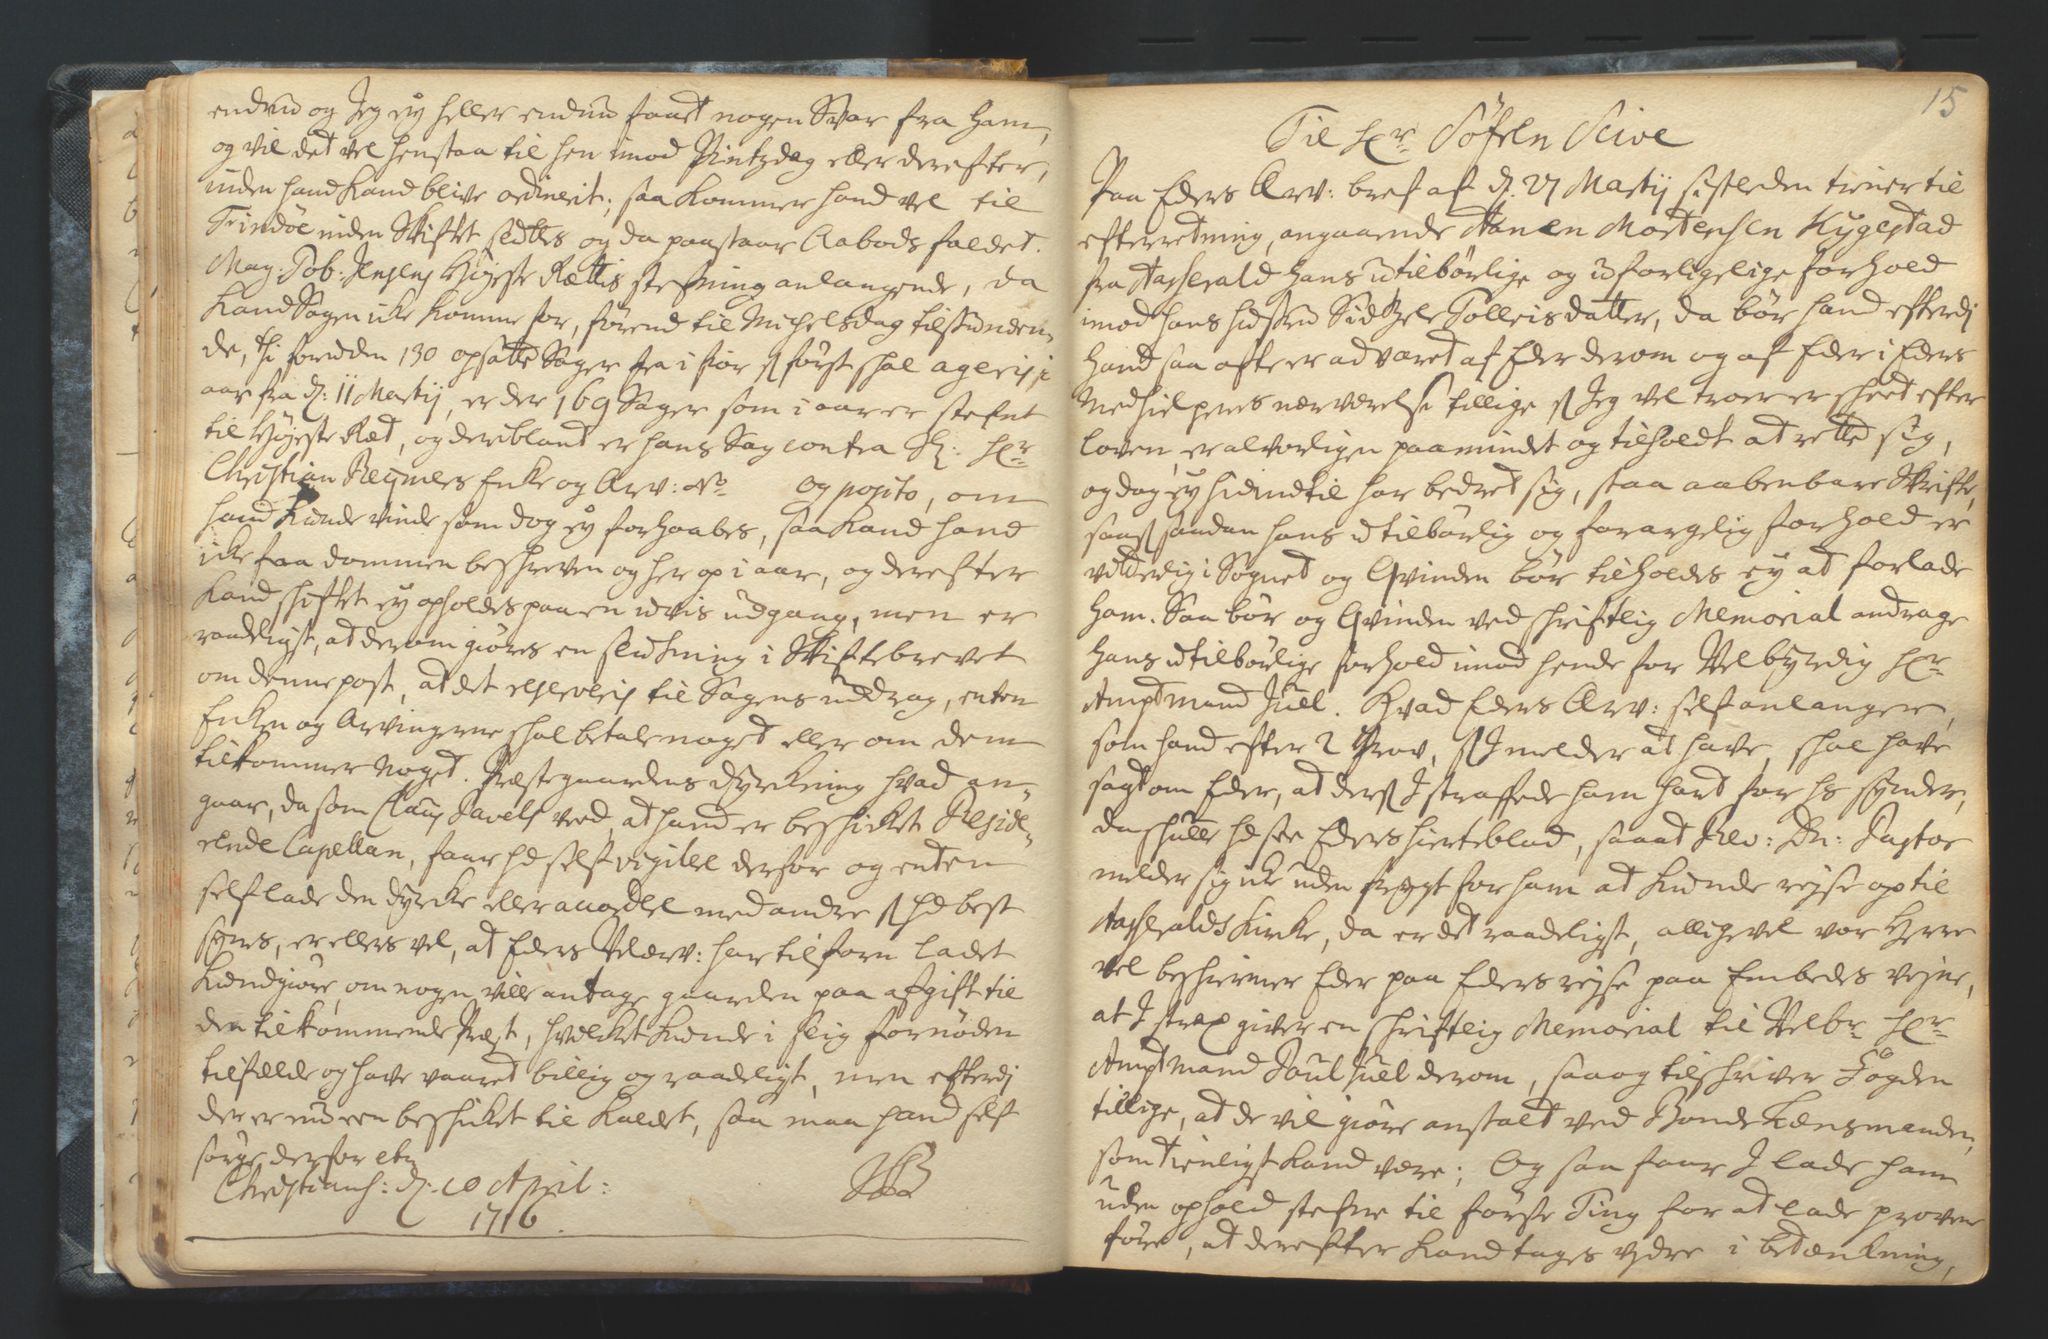 endnu og Jeg ey heller endnu faaet nogen Svar fra ham,
og vil det vel henstaa til hen imod Pintzdag eller derefter,
inden hand kand blive ordinerit; saa kommer hand vel til
Trindøe inden Skiftet sluttes og da paastaar Aabods faldet.
Mag: Tob: Jensens Høyeste Rættis stefning anlangende, da
kand Sagen icke komme for, førend til Michelsdag tilstunden-
de, thi foruden 130 opsatte Sager fra i fior som først skal ageris i
aar fra d: 11 Martij, er der 169 Sager som i aar er stefnt
til Høyeste Ræt, og deriblant er hans Sag contra Sl: Hr
Christian Regners Enke og Arv: No og posito, om
hand kunde vinde som dog ey forhaabes, saa kand hand
icke faa dommen beskreven og her op i aar, og derefter
kand skiftet ey opholdes paa en uvis udgang, men er
raadeligst, at derom giøres en slutning i Skiftebrevet
om denne post, at det reserveris til Sagens uddrag, enten
Enken og Arvingerne skal betale noget eller om dem
tilkommer noget. Præstegaardens dyrckning hvad an-
gaar, da som Claus Pavels veed, at hand er beskicket Resid-
erende Capellan, faar hd self vigilere derfor og enten
self lade den dyrcke eller accordere med andre som hd best
synes, er ellers vel, at Eders Velærv: har tilforn ladet
kundgiøre, om nogen ville antage gaarden paa afgift til
den tilkommende Præst, hvilcket kunde i slig fornøden
tilfælde og have vaaret billig og raadeligt, men efterdi
der er nu een beskicket til Kaldet, saa maa hand self
sørge derfor etc
Christians: d: 10 April:
1716.
15
Til Hr Søfren Seive
Paa Eders Ærv: bref af d. 27 Martij sistleden tiener til
efterretning, angaaende Hanen Mortensen Kygestad
fra Aasserald hans utilbørlige og uforligelige forhold
imod hans hustru Sidtzele Tolleisdatter, da bør hand efterdj
hand saa ofte er advaret af Eder derom og af Eder i Eders
Medhielperes nærværelse tillige som Jeg vel troer er skeet efter
loven, er alvorligen paamindt og tilholdt at rette sig,
og dog ey hidindtil har bedret sig, staa aabenbare Skrifte,
saasom saadan hans utilbørlig og forargelig forhold er
vitterlig i Sognet og Qvinden bør tilholdes ey at forlade
ham. Saa bør og Qvinden ved skriftlig Memorial andrage
hans utilbørlige forhold imod hende for Velbyrdig Hr
Amptmand Juel. Hvad Eders Ærv: self anlanger,
som hand efter 2 Prov, som I melder at have, skal have
sagt om Eder, at dersom I straffede ham hart for hs synder,
da skulle hd see Eders hierteblod, saa at Rev: Dn: Pastor
melder sig icke uden frygt for ham at kunde rejse op til
Aasseralds Kircke, da er det raadeligst, alligevel vor Herre
vel beskiermer Eder paa Eders rejse paa Embeds vejne,
at I strax giver en skriftlig Memorial til Velbr Hr
Amptmand Poul Juel derom, saa og tilskriver Fogden
tillige, at de vil giøre anstalt ved Bonde Lensmanden,
som tienligst kand være; Og saa faar I lade ham
uden ophold stefne til første Ting for at lade provene
føre, at derefter kand tages vidre i betænkning,